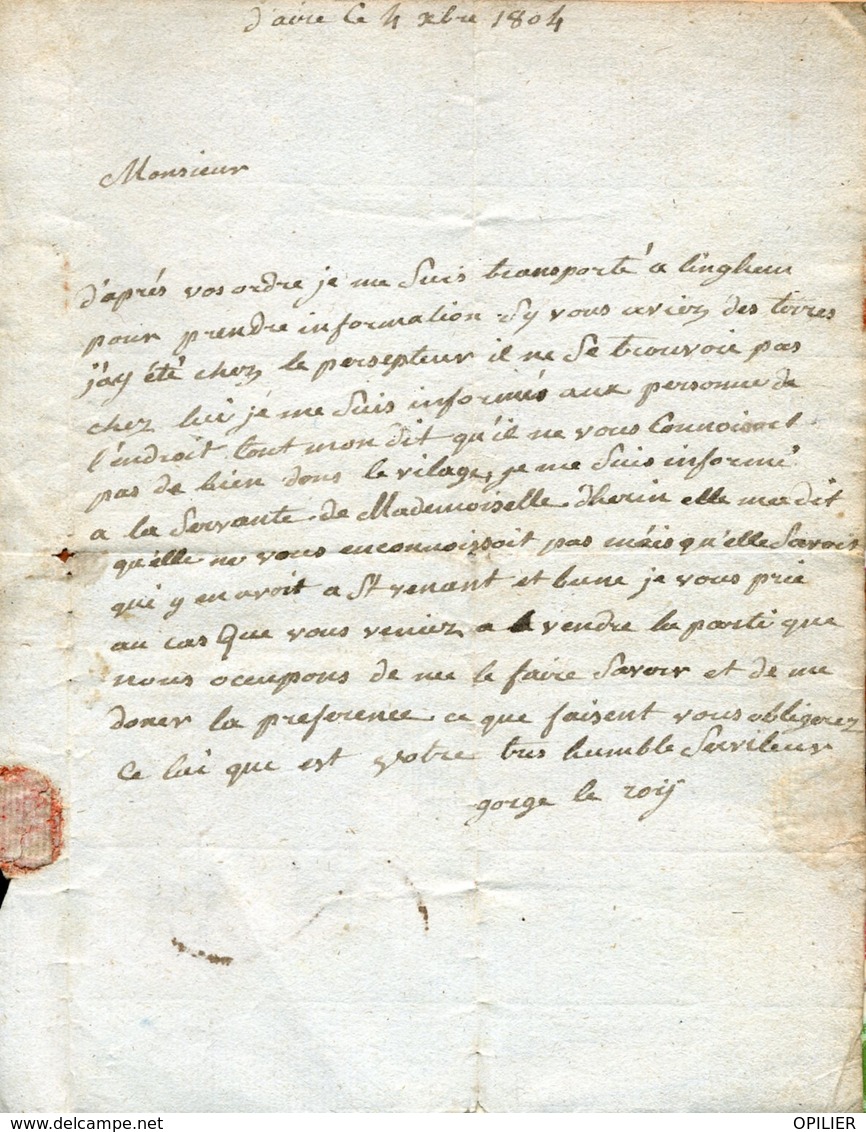 d'aire ce 4 xbre 1804
Monsieur
d'aprés vos ordre je me suis transporté a linghem
pour prendre information sy vous aviez des terres
j'ay été chez le persepteur il ne se trouvoie pas
chez lui je me suis informés aux personne de
l'endroit tout mon dit qu'il ne vous connoisoit
pas de bien dons le vilage, je me suis informé
a la servante de Mademoiselle dherin elle ma dit
qu'elle ne vous enconnoissoit pas mais qu'elle savoit
qui y en avoit a St venant et bune je vous prie
au cas Que vous veniez a vendre la parti que
nous ocupons de me le faire savoir et de me
doner la preference ce que faisent vous obligerez
Ce lui que est votre tres humble serviteur
gorge le roiÿ
delcampe.net
OPILIER